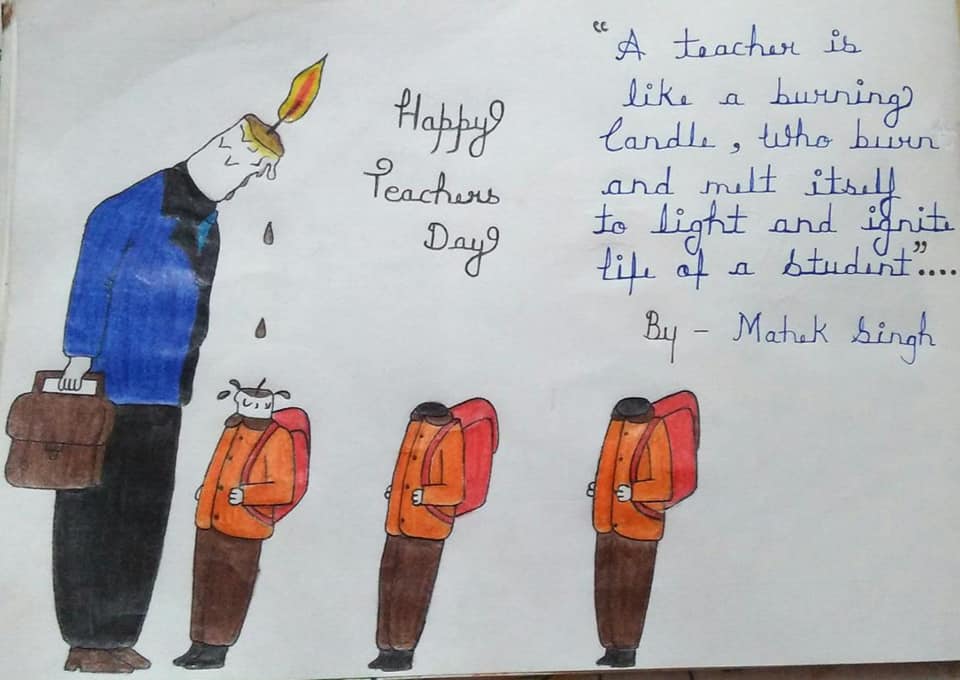 Happy
Teachers
Day
"A teacher is
like a burning
Candle, Who burn
and melt itself
to light and ignite
life of a student"....
By - Mahek Singh